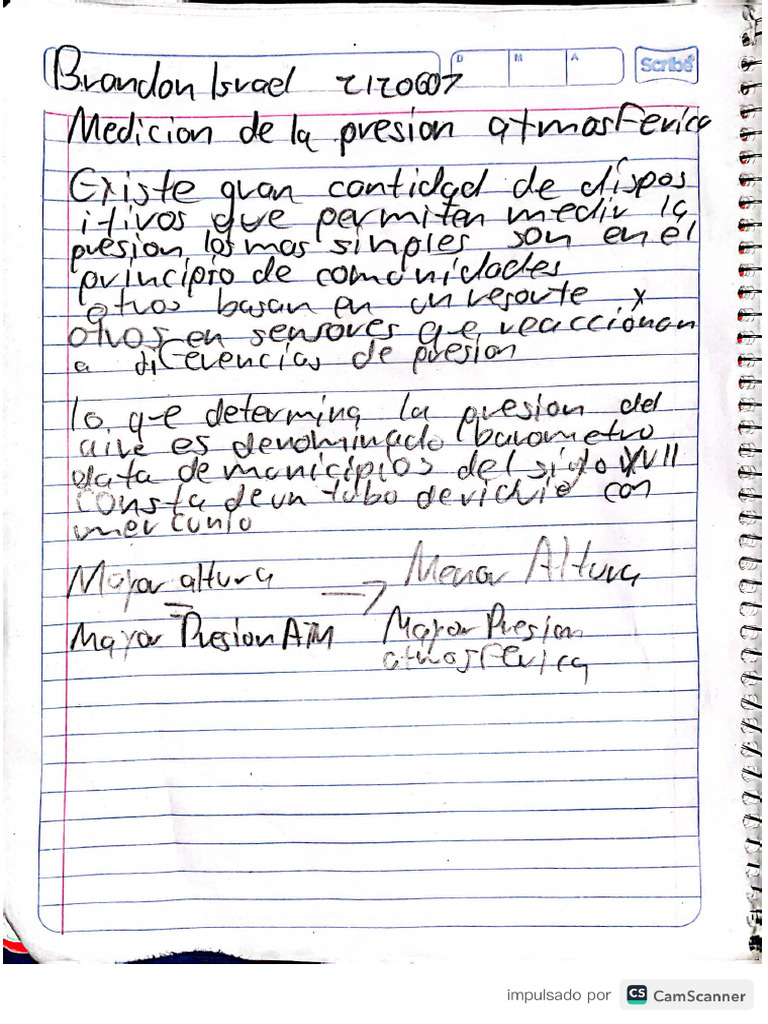 Brandon Israel 2120607
D M A
Scribe
Medicion de la presion atmosferica
Existe gran cantidad de dispos
itivos que permiten medir la
presion los mas simples son en el
principio de comunidades
otros basan en un resorte y
otros en sensores que reaccionan
a diferencias de presion
lo que determina la presion del
aire es denominado barometro
data de municipios del siglo XVII
consta de un tubo de vidrio con
mercurio
Mayor altura → Menor Altura
=
Mayor Presion ATM Mayor Presion
atmosferica
impulsado por CS CamScanner